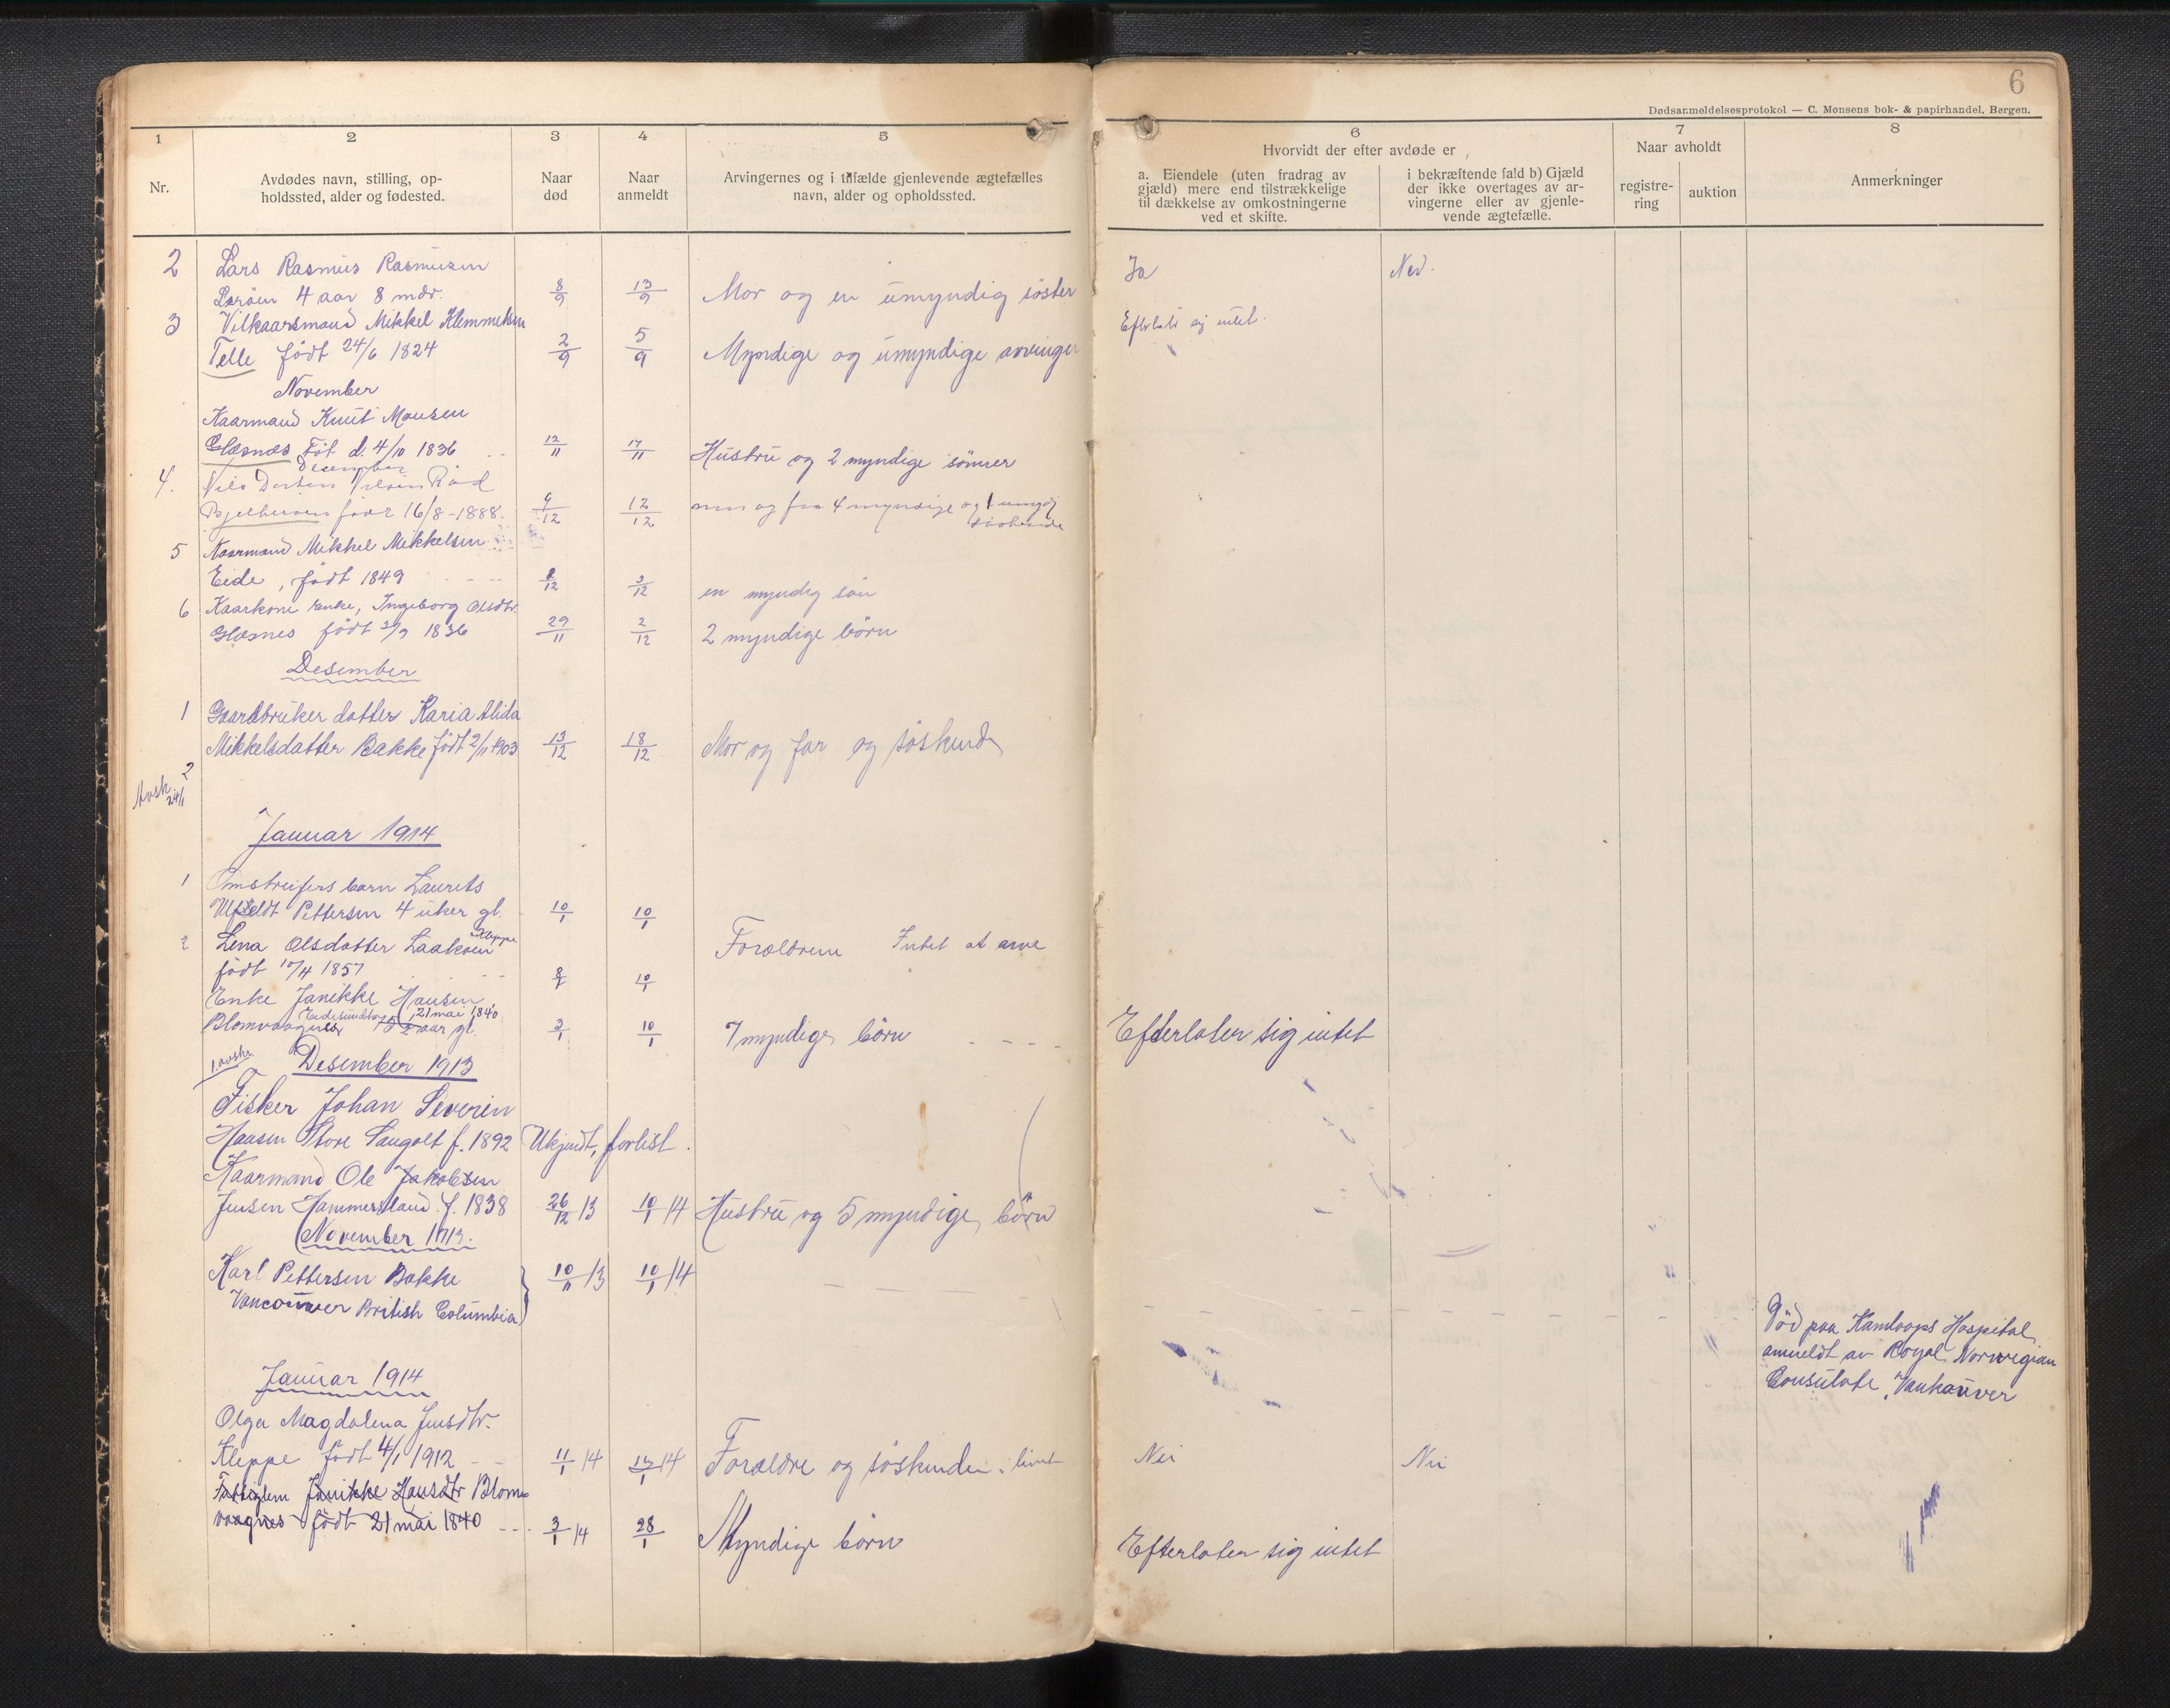 6
Dødsanmeldelsesprotokol — C. Monsens bok- & papirhandel, Bergen.
1 2 3 4 5 6 7 8
Nr.
Avdødes navn, stilling, op-
holdssted, alder og fødested.
Naar
død
Naar
anmeldt
Arvingernes og i tilfælde gjenlevende ægtefælles
navn, alder og opholdssted.
Hvorvidt der efter avdøde er
a. Eiendele (uten fradrag av
gjæld) mere end tilstrækkelige
til dækkelse av omkostningerne
ved et skifte.
i bekræftende fald b) Gjæld
der ikke overtages av ar-
vingerne eller av gjenle-
vende ægtefælle.
Naar avholdt
registre-
ring
auktion
Anmerkninger
2 Lars Rasmus Rasmusen Ja
4 aar 8 mdr. 8/9 13/9 Mor og en umyndig söster
3 Vilkaarsmand Mikkel Klemmetsen
Telle född 24/6 1824 2/9 5/9 Myndige og umyndige arvinger
November
Kaarmand Knut Monsen
Glesnes Föt d. 4/10 1836 12/11 17/11 Hustru og 2 myndige sönner
Desember
4. Nils Nilsen
född 16/8-1888. 9/12 12/12 4 myndige og 1
5 Kaarmand Mikkel Mikkelsen
Eide, född 1849 /12 3/12 en myndig sön
6 Kaarkone enke, Ingeborg Olsdtr.
Glesnes född 3/9 1836 29/11 2/12 2 myndige börn
Desember
1 Gaardbruker datter Karia Alida
Mikkelsdatter Bakke född 2/11 1903 13/12 18/12 Mor og far og söskende
2
Avsk 24/1
Januar 1914
1 Omstreifers barn Laurits
Ulfeldt Pettersen 4 uker gl. 10/1 10/1
Forældrene Intet at arve
2 Lena Olsdatter Kleppe
född 10/4 1857 8/1 10/1
Enke Janikke Hansen
21 mai 1840
Blomvaagnes aar gl. 3/1 10/1 7 myndige börn Efterlater sig intet
1. avskr. Desember 1913
Fisker Johan Severin
Hansen Store Sangolt f. 1892 Ukjendt, forlist.
Kaarmand Ole Jakobsen
Jensen Hammersland f. 1838 26/12 13 10/1 14 Hustru og 5 myndige börn
November 1913.
Karl Pettersen Bakke 10/11 13 10/1 14
Vancouver British Columbia
Död paa Kamloops Hospital,
anmeldt av Royal Norwegian
Consulate, Vankauver
Januar 1914
Olga Magdalena Jensdtr.
Kleppe född 4/1 1912 11/1 14 /1 14 Forældre og söskende Nei Nei
Fattiglem Janikke Hansdtr Blom-
vaagnes född 21 mai 1840 3/1 14 28/1 Myndige börn Efterlater sig intet